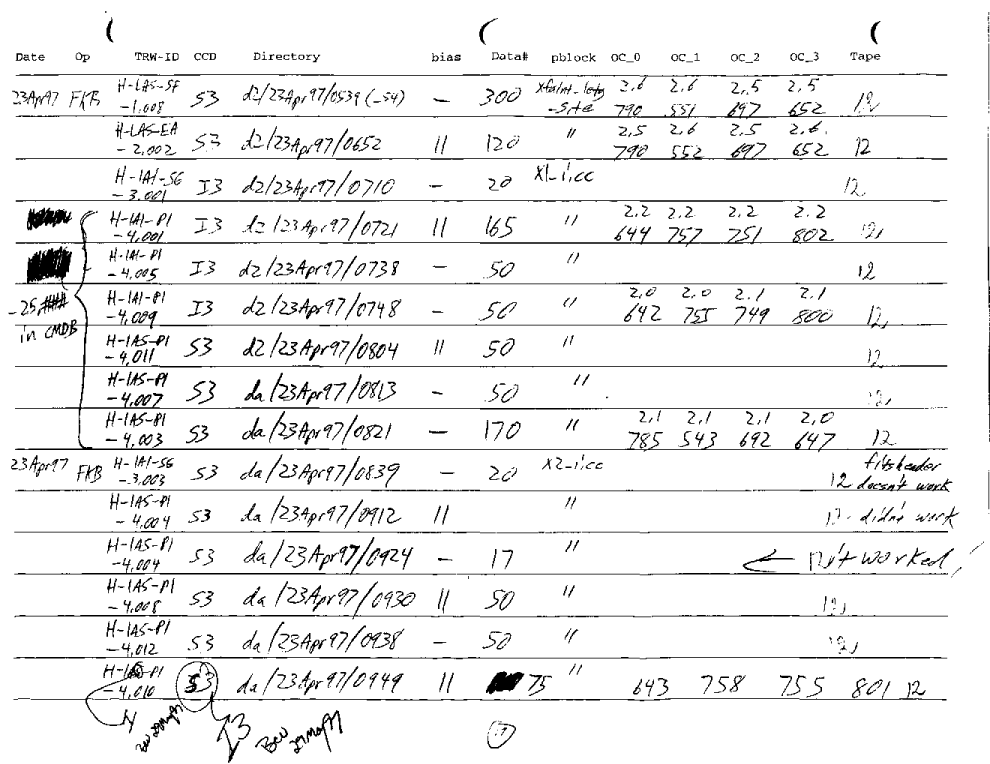 Date Op TRW-ID CCD Directory bias Data# pblock OC_0 OC_1 OC_2 OC_3 Tape
H-IAS-SF 2.6 2.6 2.5 2.5
23Apr97 FKB -1.008 S3 d2/23Apr97/0539 (-54) — 300 790 551 697 652 12
H-IAS-EA 2.5 2.6 2.5 2.6
-2.002 S3 d2/23Apr97/0652 11 120 " 790 552 697 652 12
H-IAI-SG x1-i.cc
-3.001 I3 d2/23Apr97/0710 — 20 12
H-IAI-PI 2.2 2.2 2.2 2.2
-4.001 I3 d2/23Apr97/0721 11 165 " 644 757 751 802 12
H-IAI-PI
-4.005 I3 d2/23Apr97/0738 — 50 " 12
H-IAI-PI 2.0 2.0 2.1 2.1
-25 -4.009 I3 d2/23Apr97/0748 — 50 " 642 755 749 800 12
in CMDB H-IAS-PI
-4.011 S3 d2/23Apr97/0804 11 50 " 12
H-IAS-PI
-4.007 S3 da/23Apr97/0813 — 50 " 12
H-IAS-PI 2.1 2.1 2.1 2.0
-4.003 S3 da/23Apr97/0821 — 170 " 785 543 692 647 12
23Apr97 FKB H-IAI-SG x2-i.cc fitsheader
-3.003 S3 da/23Apr97/0839 — 20 12 doesn't work
H-IAS-PI
-4.004 S3 da/23Apr97/0912 11 " 12 - didn't work
H-IAS-PI
-4.004 S3 da/23Apr97/0924 — 17 " ← 12 it worked!
H-IAS-PI
-4.008 S3 da/23Apr97/0930 11 50 " 12
H-IAS-PI
-4.012 S3 da/23Apr97/0938 — 50 " 12
-4.010 S3 da/23Apr97/0949 11 75 " 643 758 755 801 12
I3